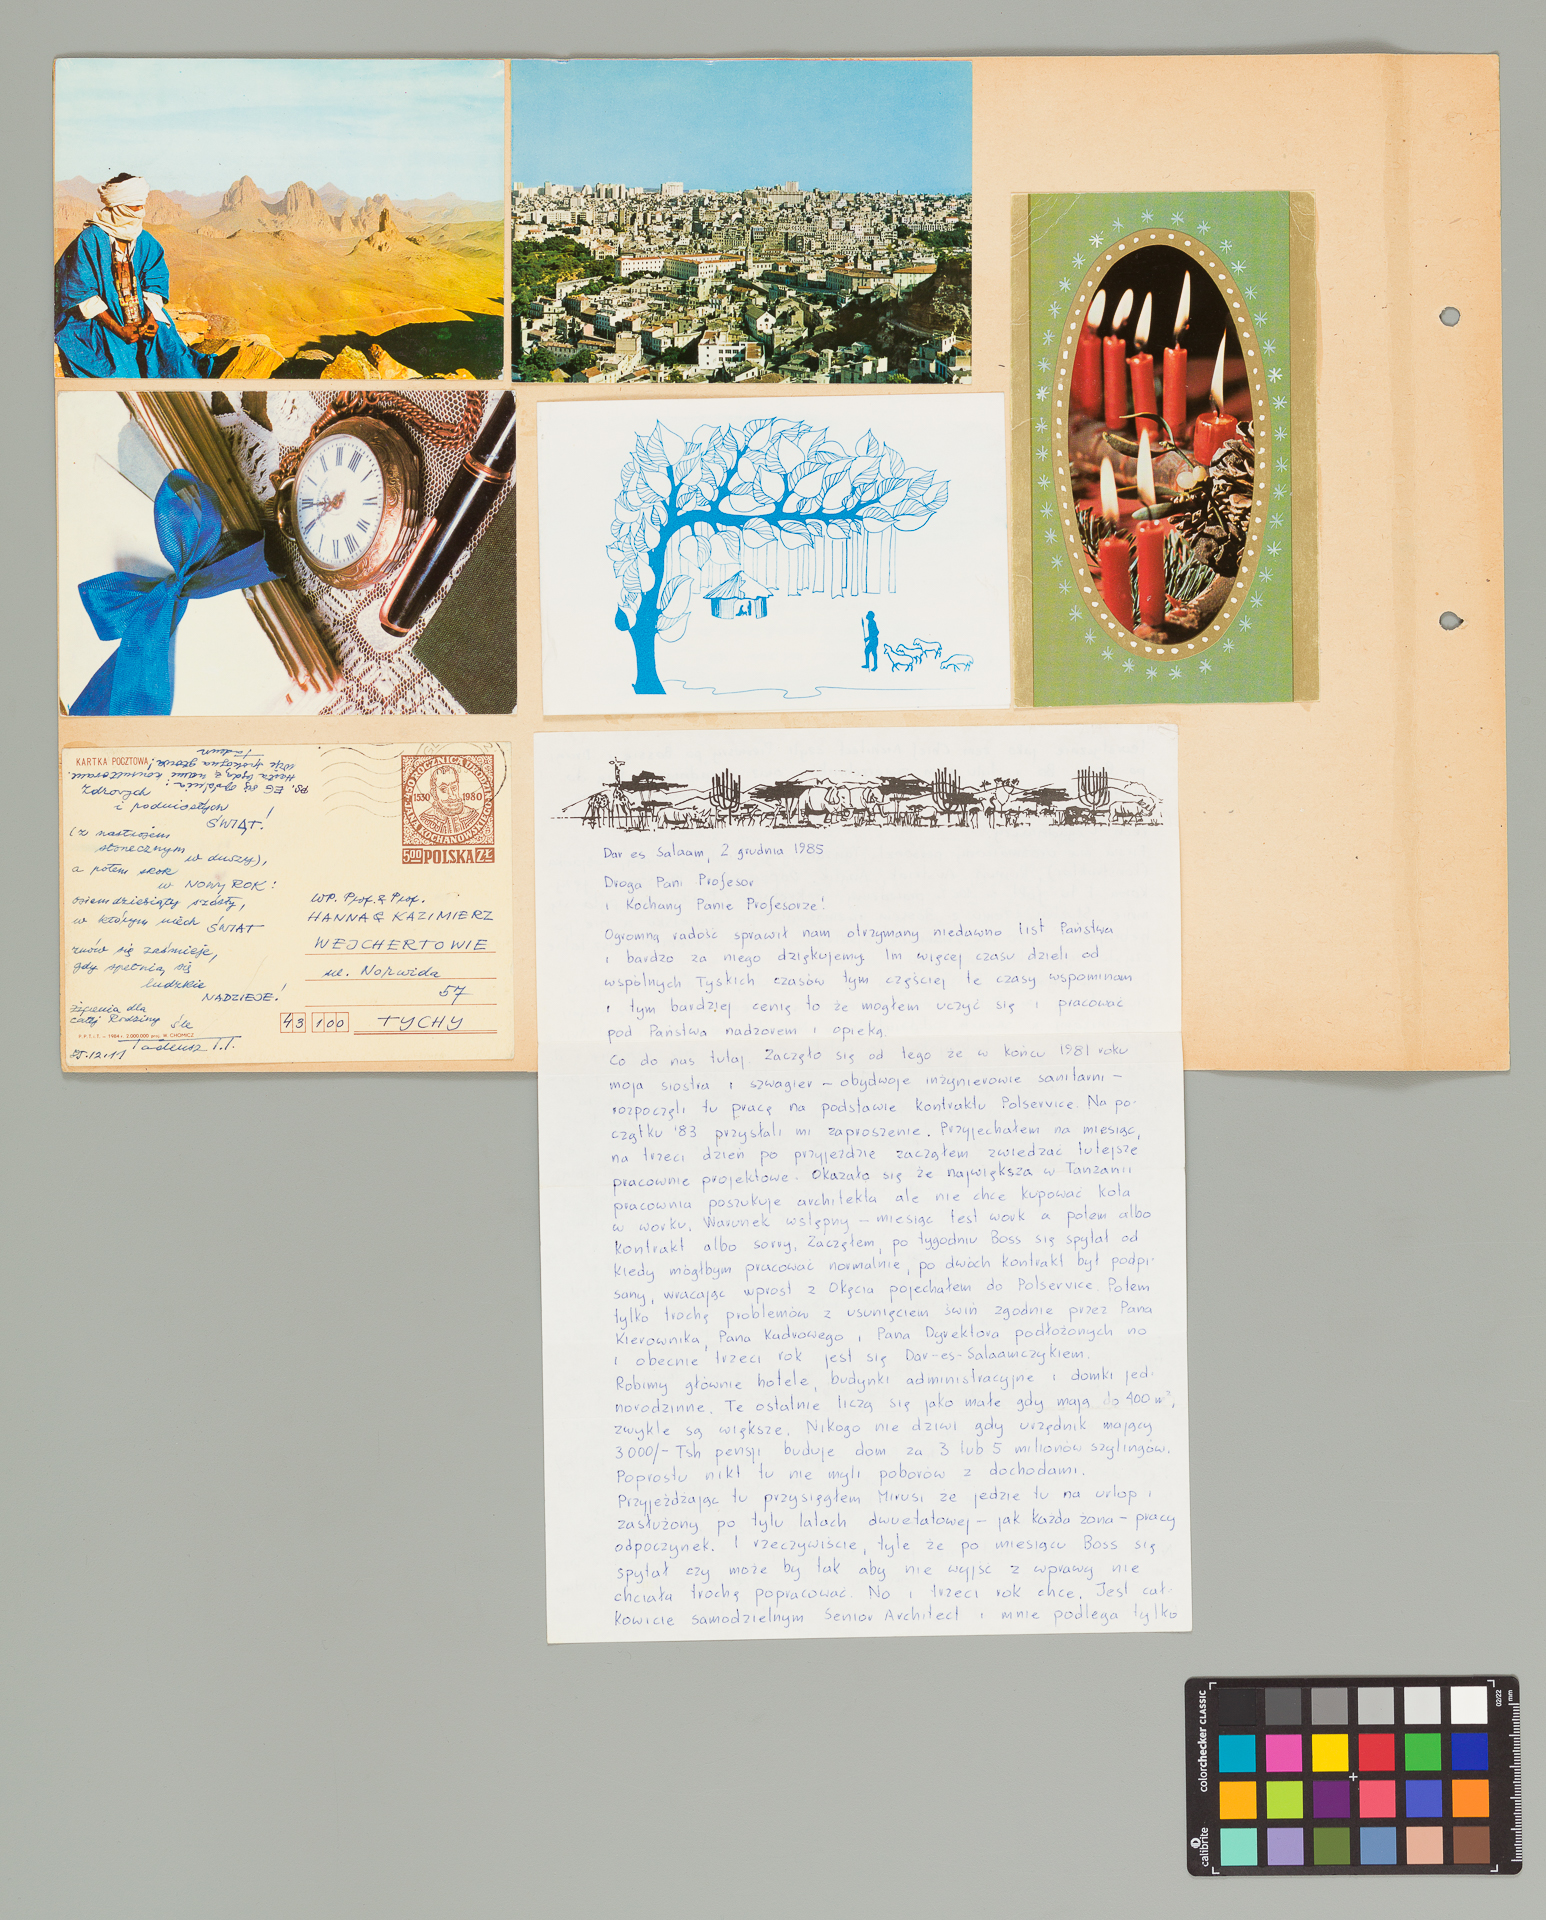 KARTKA POCZTOWA
Zdrowych
i radosnych
ŚWIĄT!
(z nastrojem
słonecznym
w duszy),
a potem skok
w NOWY ROK:
osiemdziesiąty szósty,
w którym niech ŚWIAT
znów się zaśmieje,
gdy spełnią się
ludzkie
NADZIEJE!
życzenia dla
całej Rodziny
śle
Tadeusz T.T.
85.12.11
450 ROCZNICA URODZIN
1530 1980
JANA KOCHANOWSKIEGO
5,00 POLSKA ZŁ
WP. Prof. & Prof.
HANNA & KAZIMIERZ
WEJCHERTOWIE
ul. Norwida
57
43 100 TYCHY
Dar es Salaam, 2 grudnia 1985
Droga Pani Profesor
i Kochany Panie Profesorze!
Ogromną radość sprawił nam otrzymany niedawno list Państwa
i bardzo za niego dziękujemy. Im więcej czasu dzieli od
wspólnych Tyskich czasów tym częściej te czasy wspominam
i tym bardziej cenię to że mogłem uczyć się i pracować
pod Państwa nadzorem i opieką.
Co do nas tutaj. Zaczęło się od tego że w końcu 1981 roku
moja siostra i szwagier – obydwoje inżynierowie sanitarni –
rozpoczęli tu pracę na podstawie kontraktu Polservice. Na po-
czątku '83 przysłali mi zaproszenie. Przyjechałem na miesiąc,
na trzeci dzień po przyjeździe zacząłem zwiedzać tutejsze
pracownie projektowe. Okazało się że największa w Tanzanii
pracownia poszukuje architekta ale nie chce kupować kota
w worku. Warunek wstępny – miesiąc test work a potem albo
kontrakt albo sorry. Zacząłem, po tygodniu Boss się spytał od
kiedy mógłbym pracować normalnie, po dwóch kontrakt był podpi-
sany, wracając wprost z Okęcia pojechałem do Polservice. Potem
tylko trochę problemów z usunięciem świń zgodnie przez Pana
Kierownika, Pana Kadrowego i Pana Dyrektora podłożonych no
i obecnie trzeci rok jest się Dar-es-Salaamczykiem.
Robimy głównie hotele, budynki administracyjne i domki jed-
norodzinne. Te ostatnie liczą się jako małe gdy mają do 400 m²,
zwykle są większe. Nikogo nie dziwi gdy urzędnik mający
3000/- Tsh pensji buduje dom za 3 lub 5 milionów szylingów.
Poprostu nikt tu nie myli poborów z dochodami.
Przyjeżdżając tu przysięgłem Mirusi że jedzie tu na urlop i
zasłużony po tylu latach dwuetatowej – jak każda żona – pracy
odpoczynek. I rzeczywiście, tyle że po miesiącu Boss się
spytał czy może by tak aby nie wyjść z wprawy nie
chciała trochę popracować. No i trzeci rok chce. Jest cał-
kowicie samodzielnym Senior Architect i mnie podlega tylko
colorchecker CLASSIC
calibrite
02/22
mm